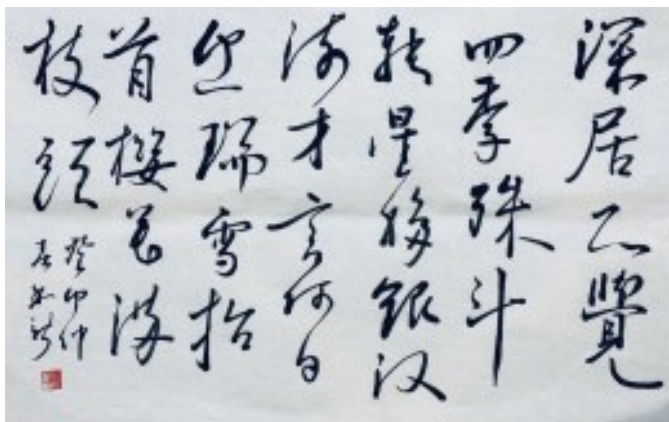 深居不覺
四季殊斗
转星移銀汉
流才言何日
迎瑞雪抬
首櫻花满
枝頭
癸卯仲
春